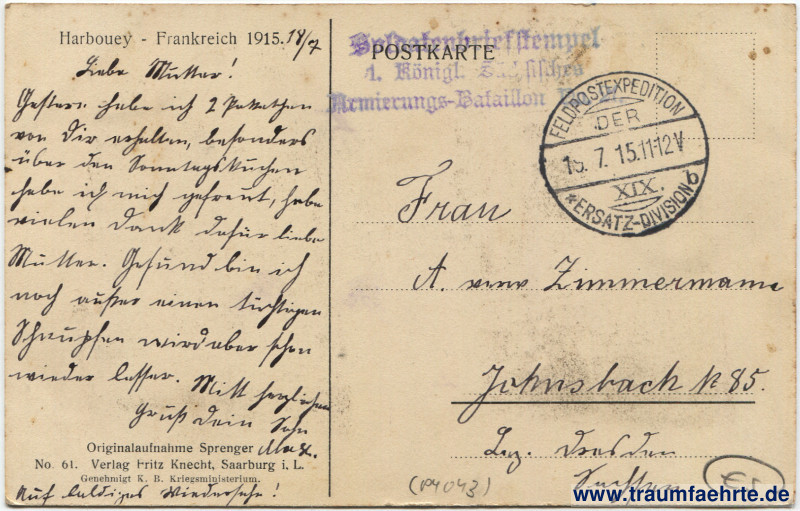 Harbouey - Frankreich 1915. 18/7
Liebe Mutter!
Gestern habe ich 2 Paketchen
von Dir erhalten, besonders
über den Sonntagskuchen
habe ich mich gefreut, habe
vielen Dank dafür liebe
Mutter. Gesund bin ich
noch außer einen tüchtigen
Schnupfen wird aber schon
wieder besser. Mitt herzlichen
Gruß Dein Sohn
Max.
Originalaufnahme Sprenger
No. 61. Verlag Fritz Knecht, Saarburg i. L.
Genehmigt K. B. Kriegsministerium.
Auf baldiges Wiedersehn!
Soldatenbriefstempel
POSTKARTE
1. Königl. Sächsisches
Armierungs-Bataillon
FELDPOSTEXPEDITION
DER
7. 15. 11-12 V
XIX.
*ERSATZ-DIVISION b
Frau
A. verw Zimmermann
Johnsbach N 85.
Bez. Dresden
Sachsen
(P4043)
www.traumfaehrte.de